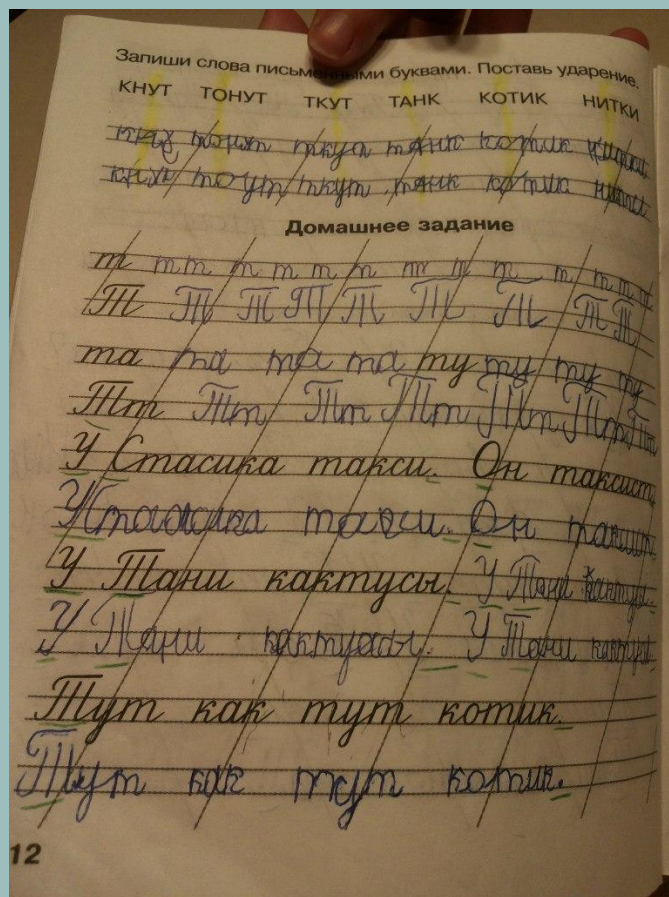 Запиши слова письменными буквами. Поставь ударение.
КНУТ ТОНУТ ТКУТ ТАНК КОТИК НИТКИ
ткут танк котик
тоут ткут танк котик нитки
Домашнее задание
т т т т т т т т т т т т т т
Т Т Т Т Т Т Т Т Т
та та та та ту ту ту ту
Тт Тт Тт Тт Тт Тт Тт
У Стасика такси. Он таксист.
У Стасика такси. Он таксист.
У Тани кактусы. У Тани кактусы.
У Тани кактусы. У Тани кактусы.
Тут как тут котик.
Тут как тут котик.
12